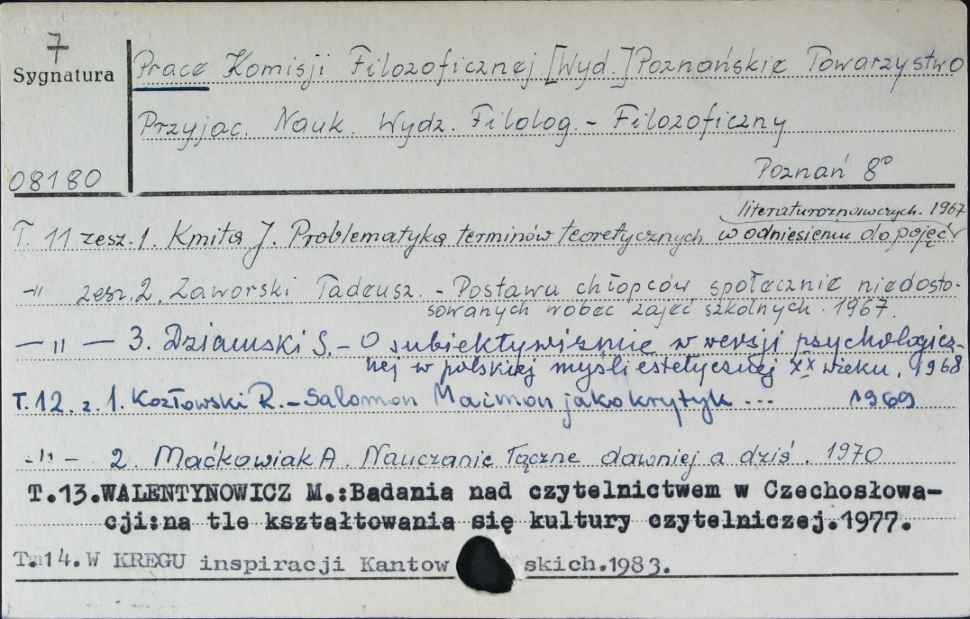 7
Sygnatura
Prace Komisji Filozoficznej [Wyd.] Poznańskie Towarzystwo
Przyjac. Nauk. Wydz. Filolog. - Filozoficzny
08180
Poznań 8°
T. 11 zesz. 1. Kmita J. Problematyka terminów teoretycznych w odniesieniu do pojęć
literaturoznawczych. 1967
-"- zesz. 2. Zaworski Tadeusz. - Postawa chłopców społecznie niedosto-
sowanych wobec zajęć szkolnych. 1967.
-"- 3. Dziamski S. - O subiektywizmie w wersji psychologicz-
nej w polskiej myśli estetycznej XX wieku. 1968
T. 12. z. 1. Kozłowski R. - Salomon Maimon jako krytyk ... 1969
-"- 2. Maćkowiak A. Nauczanie łączne dawniej a dziś. 1970
T.13.WALENTYNOWICZ M.:Badania nad czytelnictwem w Czechosłowa-
cji:na tle kształtowania się kultury czytelniczej.1977.
T.14.W KRĘGU inspiracji Kantow skich.1983.